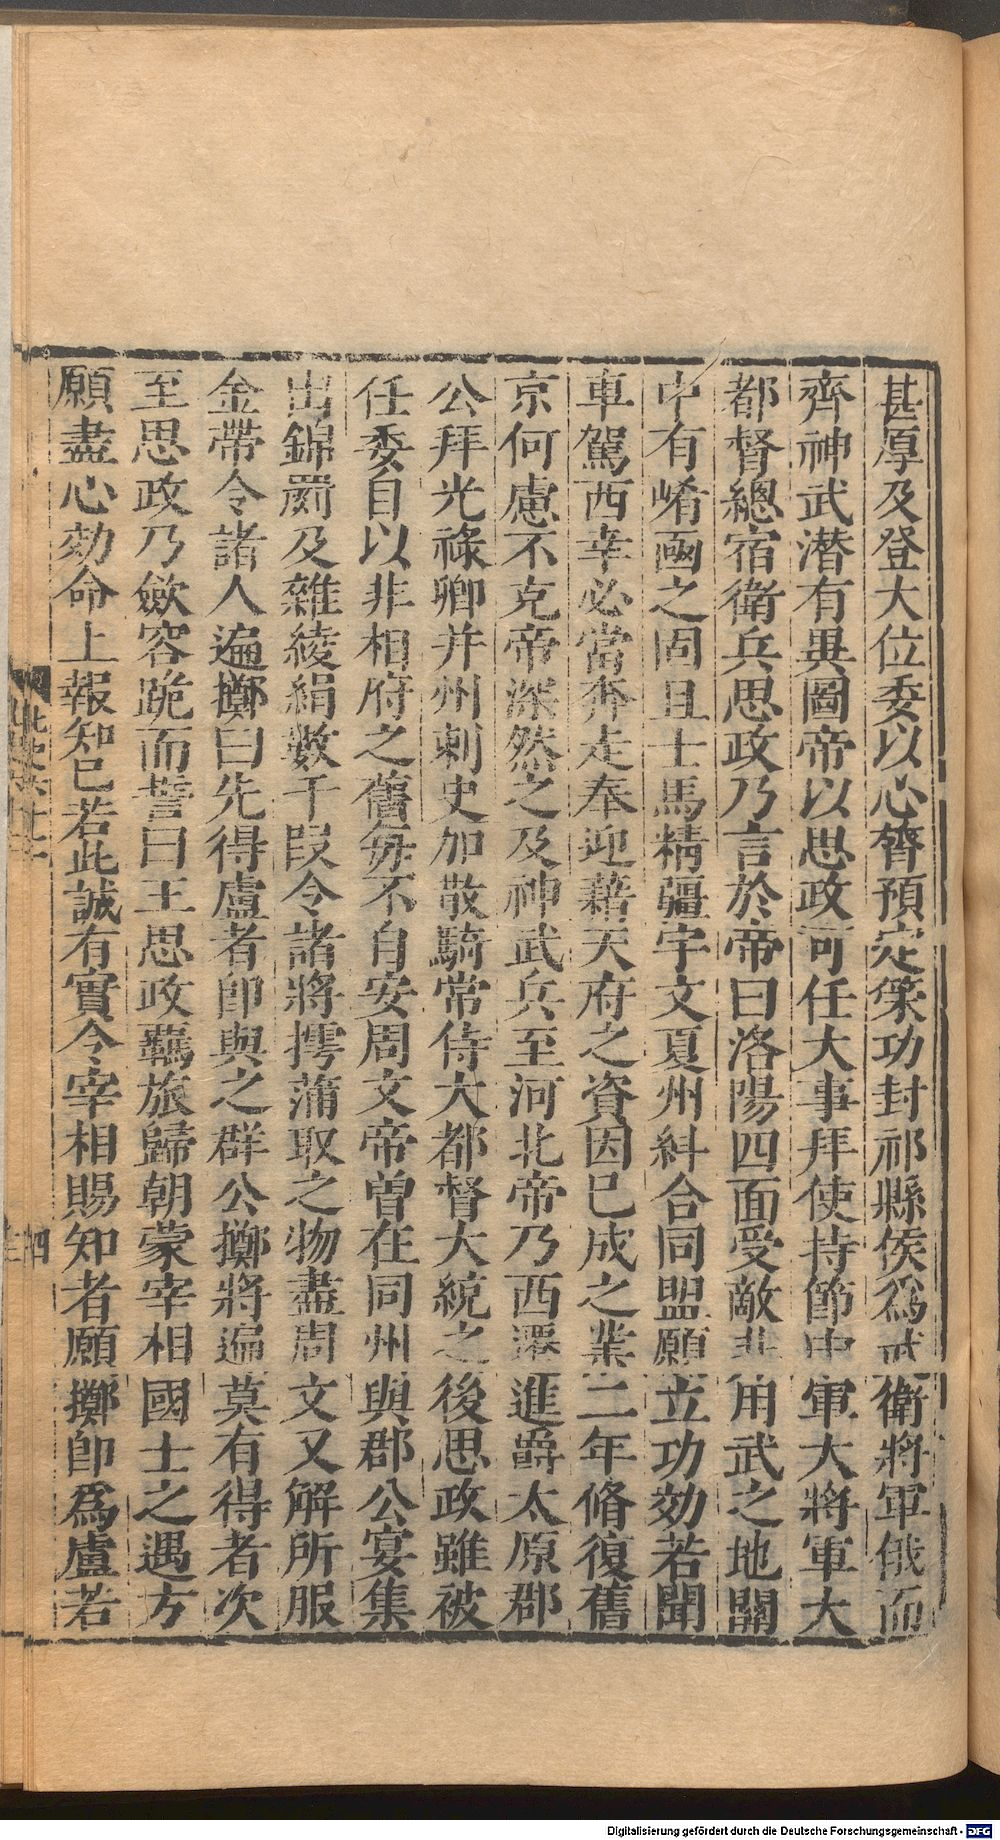 甚厚及登大位委以心膂預定策功封祁縣侯爲武衛將軍俄而
齊神武潜有異圖帝以思政可任大事拜使持節中軍大將軍大
都督總宿衛兵思政乃言於帝曰洛陽四面受敵非用武之地關
中有崤凾之固且士馬精彊宇文夏州糾合同盟願立功効若聞
車駕西幸必當奔走奉迎藉天府之資因巳成之業二年脩復舊
京何慮不克帝深然之及神武兵至河北帝乃西遷進爵太原郡
公拜光祿卿并州刺史加散騎常侍大都督大統之後思政雖被
任委自以非相府之舊毎不自安周文帝曾在同州與郡公宴集
出錦罽及雜綾絹數千段令諸將摴蒲取之物盡周文又解所服
金帶令諸人遍擲曰先得盧者卽與之群公擲將遍莫有得者次
至思政乃歛容跪而誓曰王思政羈旅歸朝蒙宰相國士之遇方
願盡心効命上報知巳若此誠有實令宰相賜知者願擲卽爲盧若
北史六十二
四
Digitalisierung gefördert durch die Deutsche Forschungsgemeinschaft - DFG